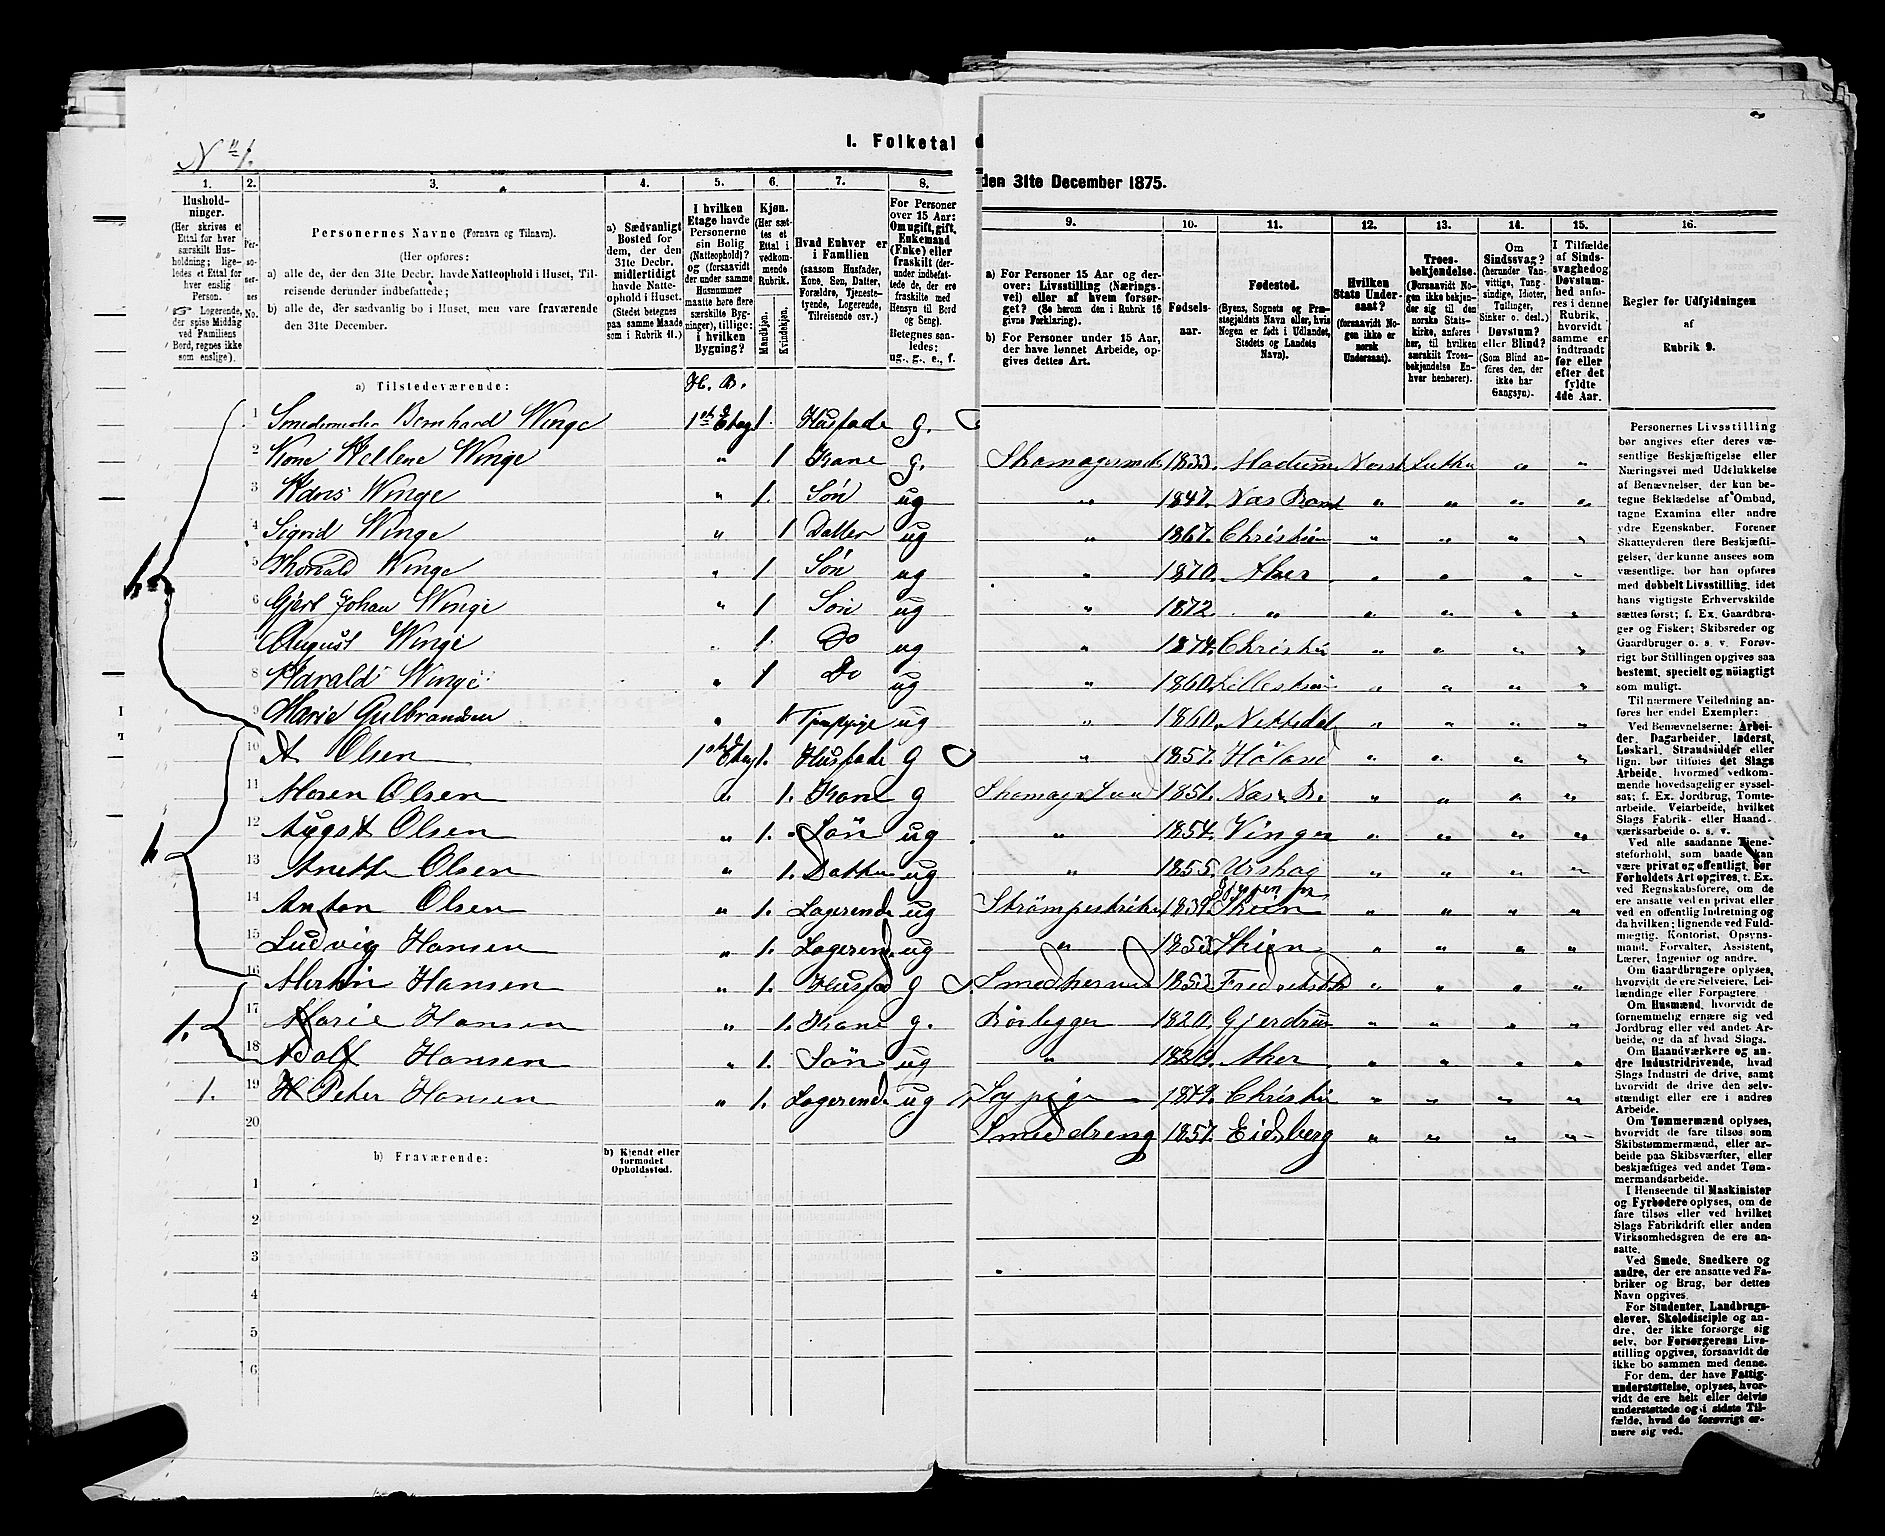 N° 1.
I. Folketal d
den 31te December 1875.
1. 2. 3. 4. 5. 6. 7. 8.
9. 10. 11. 12. 13. 14. 15. 16.
Hushold-
ninger.
(Her skrives et
Ettal for hver
særskilt Hus-
holdning; lige-
ledes et Ettal for
hver enslig
Person.
☞ Logerende,
der spise Middag
ved Familiens
Bord, regnes ikke
som enslige).
Per-
so-
ner-
nes
No.
Personernes Navne (Fornavn og Tilnavn).
(Her opføres:
a) alle de, der den 31te Decbr. havde Natteophold i Huset, Til-
reisende derunder indbefattede;
b) alle de, der sædvanlig bo i Huset, men vare fraværende
den 31te December.
a) Sædvanligt
Bosted for
dem, der den
31te Decbr.
midlertidigt
havde Natte-
ophold i Huset.
(Stedet betegnes
paa samme Maade
som i Rubrik 11.)
I hvilken
Etage havde
Personerne
sin Bolig
(Natteophold)?
og (forsaavidt
der under samme
Husnummer
maatte høre flere
særskilte Byg-
ninger), tillige:
i hvilken
Bygning?
Kjøn.
(Her sæt-
tes et
Ettal i
vedkom-
mende
Rubrik.
Mandkjøn.
Kvindekjøn.
Hvad Enhver er
i Familien
(saasom Husfader,
Kone, Søn, Datter,
Forældre, Tjeneste-
tyende, Logerende,
Tilreisende osv.)
For Personer
over 15 Aar:
Om ugift, gift,
Enkemand
(Enke) eller
fraskilt (der-
under indbefat-
tede de, der ere
fraskilte med
Hensyn til Bord
og Seng).
Betegnes saa-
ledes:
ug., g., e., f.
a) For Personer 15 Aar og der-
over: Livsstilling (Nærings-
vei) eller af hvem forsør-
get? (Se herom den i Rubrik 16
givne Forklaring).
b) For Personer under 15 Aar,
der have lønnet Arbeide, op-
gives dettes Art.
Fødsels-
aar.
Fødested.
(Byens, Sognets og Præ-
stegjeldets Navn eller, hvis
Nogen er født i Udlandet,
Stedets og Landets
Navn).
Hvilken
Stats Under-
saat?
(forsaavidt No-
gen ikke er
norsk
Undersaat).
Troes-
bekjendelse.
(Forsaavidt No-
gen ikke bekjen-
der sig til den
norske Stats-
kirke, anføres
her, til hvilken
særskilt Troes-
bekjendelse En-
hver henhører).
Om
Sindssvag?
(herunder Van-
vittige, Tung-
sindige, Idioter,
Tullinger,
Sinker o. desl.)
Døvstum?
eller Blind?
(Som Blind an-
føres den, der
ikke har
Gangsyn).
I Tilfælde
af Sinds-
svaghed og
Døvstum-
hed anfø-
res i denne
Rubrik,
hvorvidt
samme er
indtraadt
før eller
efter det
fyldte
4de Aar.
Regler for Udfyldningen
af
Rubrik 9.
a) Tilstedeværende: H. B.
1 Bernhard Winge 1ste Etage 1. Husfade g.
2 Kone Hellene Winge „ 1 Kone g.
3 Hans Winge „ 1. Søn ug
4 Sigrid Winge „ 1 Datter ug
5 Thorvald Winge „ 1 Søn ug
6 Gjert Johan Winge „ 1 Søn ug
7 August Winge „ 1. Do ug
8 Harald Winge „ 1 Do ug
9 Marie Gulbrandsen „ 1 Tjpige ug
10 A Olsen 1ste Etag 1. Husfade g
11 Maren Olsen „ 1. Kone g
12 August Olsen „ 1. Søn ug
13 Anette Olsen „ 1. Datter ug
14 Anton Olsen „ 1. Logerende ug
15 Ludvig Hansen „ 1. Logerende ug
16 Martin Hansen „ 1. Husfad g
1. 17 Marie Hansen „ 1. Kone g.
18 Adolf Hansen „ 1. Søn ug
1. 19 H Peter Hansen „ 1. Logerende ug
20
b) Fraværende:
b) Kjendt eller
formodet
Opholdssted.
1
2
3
4
5
6
1833. Modum Norsk Luther „ „
„ 1847. „ „ „ „
„ 1867. Christian „ „ „ „
„ 1870. Aker „ „ „ „
„ 1872 „ „ „ „ „
„ 1874. Christia „ „ „ „
„ 1860. Lillestrøm „ „ „ „
„ 1860. Nittedal „ „ „ „
„ 1857. Høland „ „ „ „
1851. „ „ „ „
„ 1854. Vinger „ „ „ „
„ 1855. Urskog „ „ „ „
Skien „ „ „ „
„ 1853 Skien „ „ „ „
Smedsvend 1853 Fredrikstd „ „ „ „
Rørlegger 1820. Gjerdrum „ „ „ „
„ Aker „ „ „ „
Sypige Christia „ „ „ „
Smeddreng 1857. Eidsberg „ „ „ „
Personernes Livsstilling
bør angives efter deres væ-
sentlige Beskjæftigelse eller
Næringsvei med Udelukkelse
af Benævnelser, der kun be-
tegne Beklædelse af Ombud,
tagne Examina eller andre
ydre Egenskaber. Forener
Skatteyderen flere Beskjæfti-
gelser, der kunne ansees som
væsentlige, bør han opføres
med dobbelt Livsstilling, idet
hans vigtigste Erhvervskilde
sættes først; f. Ex. Gaardbru-
ger og Fisker; Skibsreder og
Gaardbruger o. s. v. Forøv-
rigt bør Stillingen opgives saa
bestemt, specielt og nöiagtigt
som muligt.
Til nærmere Veiledning an-
føres her endel Exempler:
Ved Benævnelserne: Arbei-
der, Dagarbeider, Inderst,
Løskarl, Strandsidder eller
lign. bør tilføies det Slags
Arbeide, hvormed vedkom-
mende hovedsagelig er syssel-
sat; f. Ex. Jordbrug, Tomte-
arbeide, Veiarbeide, hvilket
Slags Fabrik- eller Haand-
værksarbeide o. s. v.
Ved alle saadanne Tjene-
steforhold, som baade kan
være privat og offentligt, bør
Forholdets Art opgives, t. Ex.
ved Regnskabsførere, om de
ere ansatte ved en privat eller
ved en offentlig Indretning og
da hvilken; lignende ved Fuld-
mægtig, Kontorist, Opsyns-
mand, Forvalter, Assistent,
Lærer, Ingeniør og andre.
Om Gaardbrugere oplyses,
hvorvidt de ere Selveiere, Lei-
lændinge eller Forpagtere.
Om Husmænd, hvorvidt de
fornemmelig ernære sig ved
Jordbrug eller ved andet Ar-
beide, og da af hvad Slags.
Om Haandværkere og an-
dre Industridrivende, hvad
Slags Industri de drive, samt
hvorvidt de drive den selv-
stændigt eller ere i andres
Arbeide.
Om Tømmermænd oplyses,
hvorvidt de fare tilsøs som
Skibstømmermænd, eller ar-
beide paa Skibsværfter, eller
beskjæftiges ved andet Tøm-
mermandsarbeide.
I Henseende til Maskinister
og Fyrbødere oplyses, om de
fare tilsøs eller ved hvilket
Slags Fabrikdrift eller anden
Virksomhedsgren de ere an-
satte.
Ved Smede, Snedkere og
andre, der ere ansatte ved Fa-
briker og Brug, bør dettes
Navn opgives.
For Studenter, Landbrugs-
elever, Skoledisciple og an-
dre, der ikke forsørge sig
selv, bør Forsørgerens Livs-
stilling opgives, forsaavidt de
ikke bo sammen med denne.
For dem, der have Fattig-
understøttelse, oplyses, hvor-
vidt de ere helt eller delvis
understøttede og i sidste Til-
fælde, hvad de forøvrigt er-
nære sig ved.